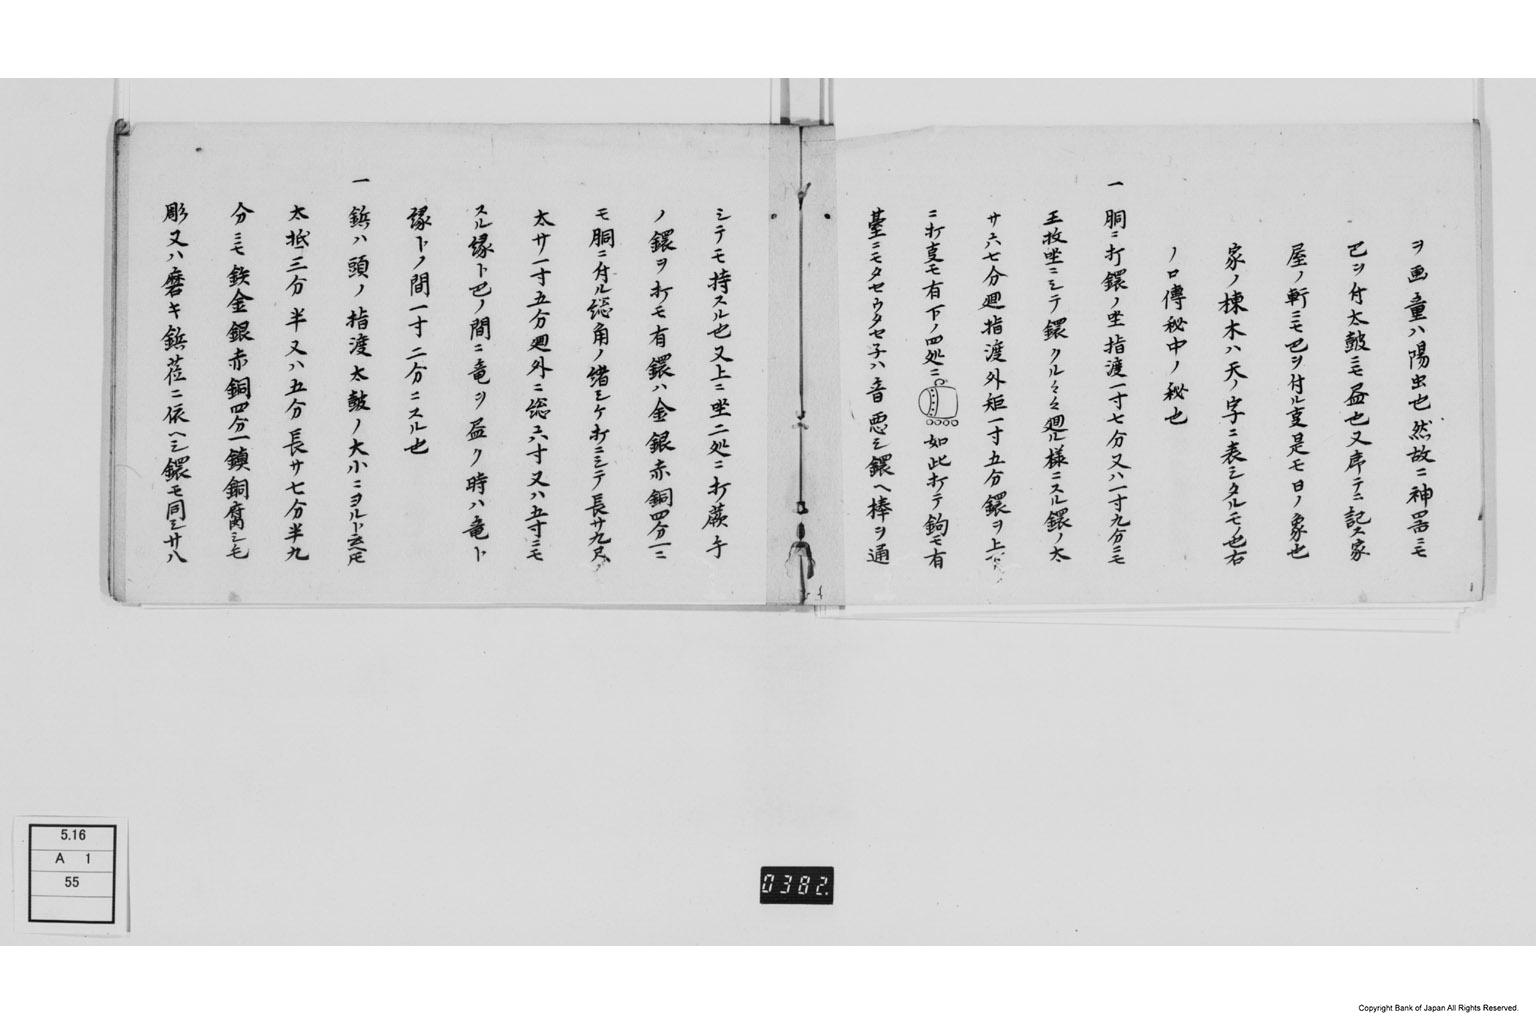 ヲ画竜ハ陽虫也然故ニ神器ニモ
巴ヲ付太皷ニモ画也又序テニ記ス家
屋ノ軒ニモ巴ヲ付ル㕝是モ日ノ象也
家ノ棟木ハ天ノ字ニ表シタルモノ也右
ノ口傳秘中ノ秘也
一 胴ニ打鐶ノ坐指渡一寸七分又ハ一寸九分ニモ
王牧坐ニシテ鐶クルクル廻ル様ニスル鐶ノ太
サ六七分廻指渡外矩一寸五分鐶ヲ上下
ニ打㕝モ有下ノ四処ニ如此打テ鉤モ有
臺ニモタセウタセ子ハ音悪シ鐶ヘ棒ヲ通
シテモ持スル也又上ニ坐二処ニ打蕨手
ノ鐶ヲ打モ有鐶ハ金銀赤銅四分一ニ
モ胴ニ付ル総角ノ緒シケ打ニシテ長サ九尺
太サ一寸五分廻外ニ総六寸又ハ五寸ニモ
スル縁ト巴ノ間ニ竜ヲ画ク時ハ竜ト
縁トノ間一寸二分ニスル也
一 鋲ハ頭ノ指渡太皷ノ大小ニヨルト云𪜈
太抵三分半又ハ五分長サ七分半九
分ニモ鉄金銀赤銅四分一鎮銅腐シニモ
彫又ハ磨キ鋲莅ニ依ヘシ鐶モ同シ廿八
5.16
A 1
55
0382.
Copyright Bank of Japan All Rights Reserved.